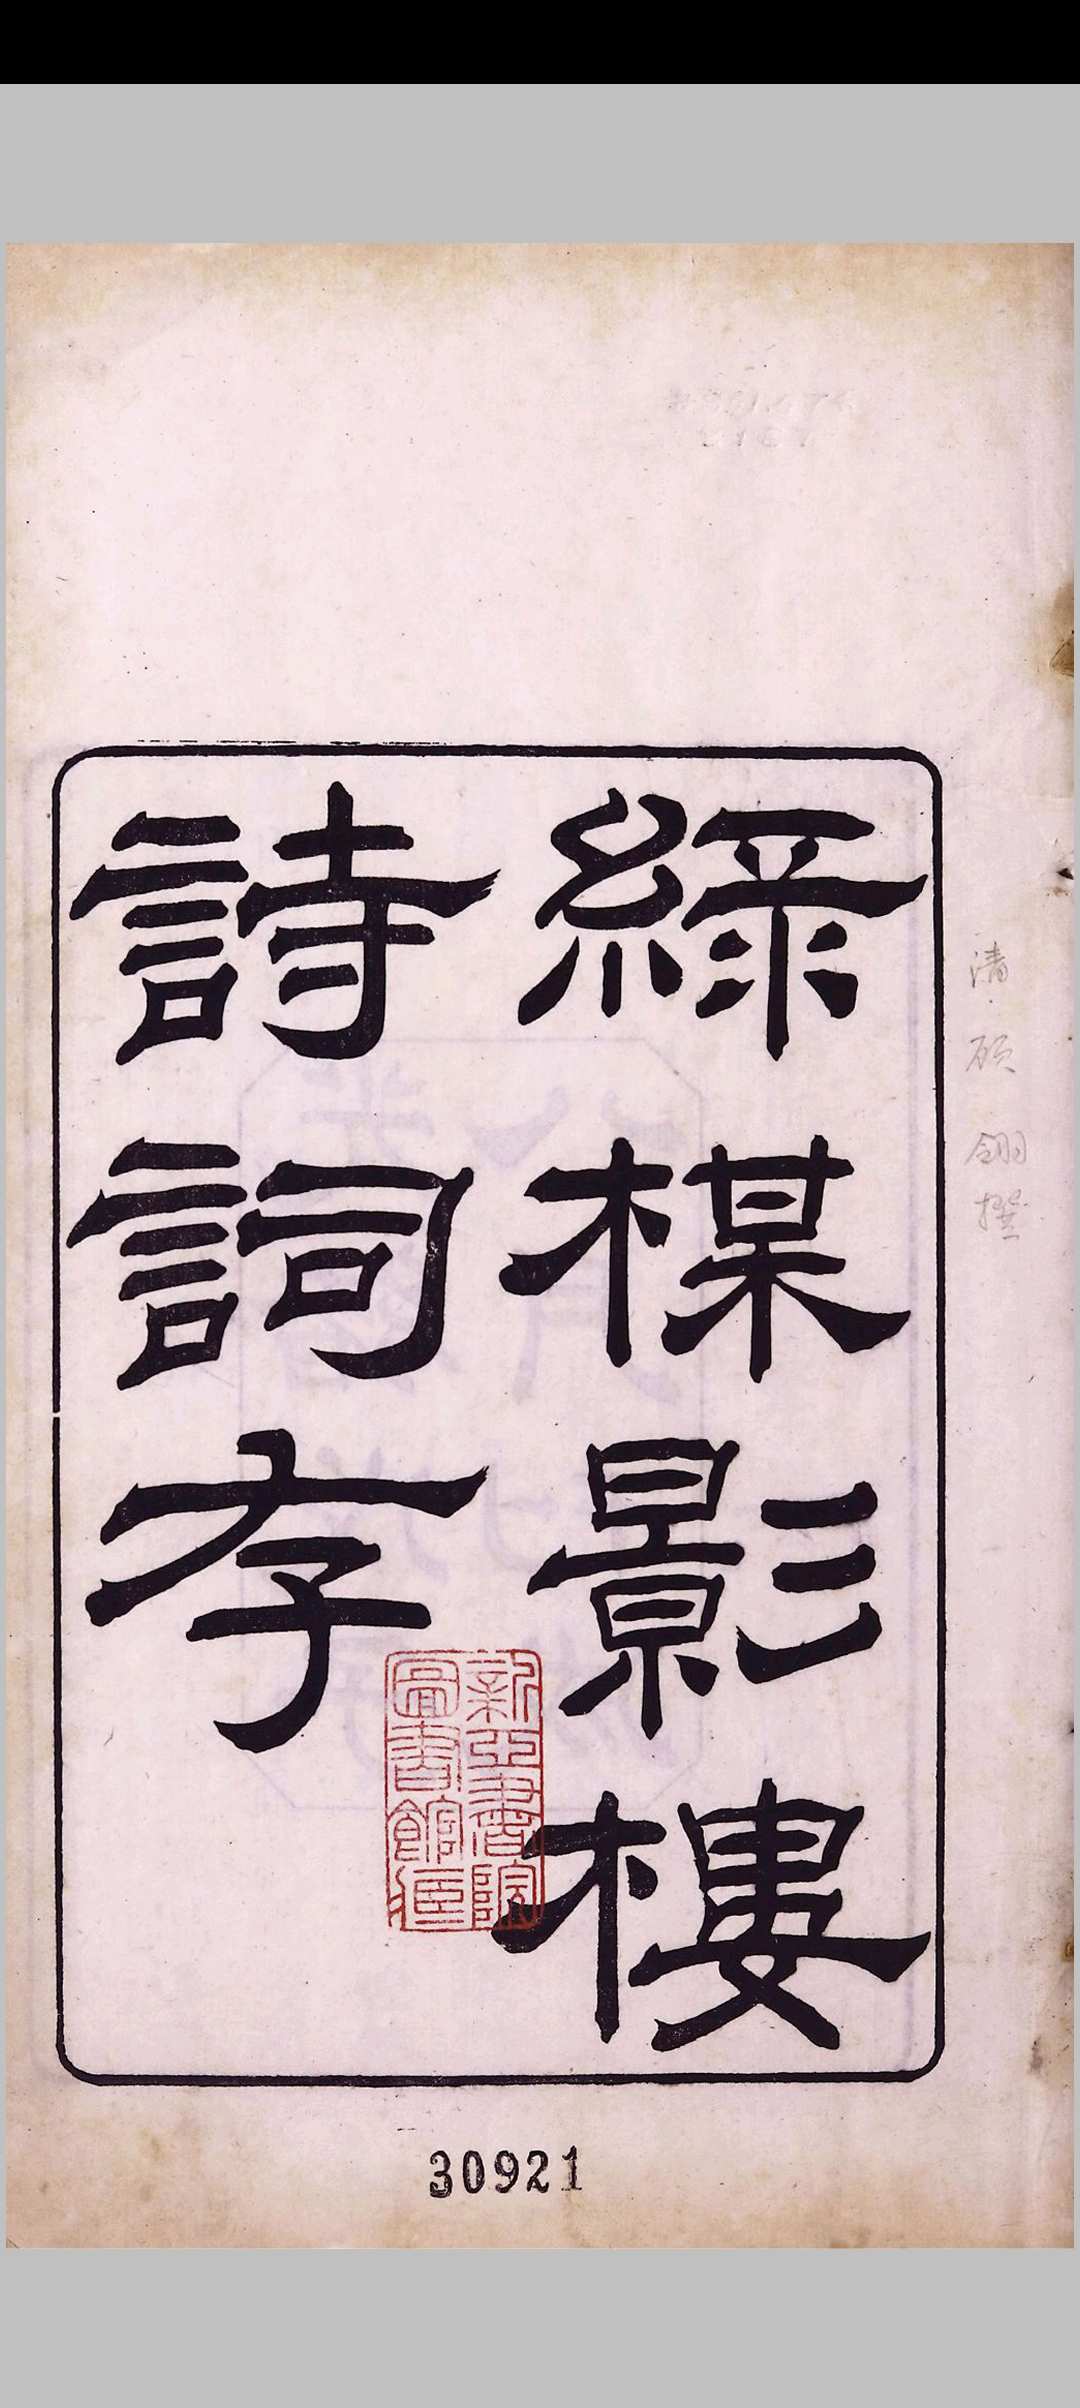 綠楳影樓
詩詞存
清 顾 翎 撰
新亞書院
圖書館藏
30921